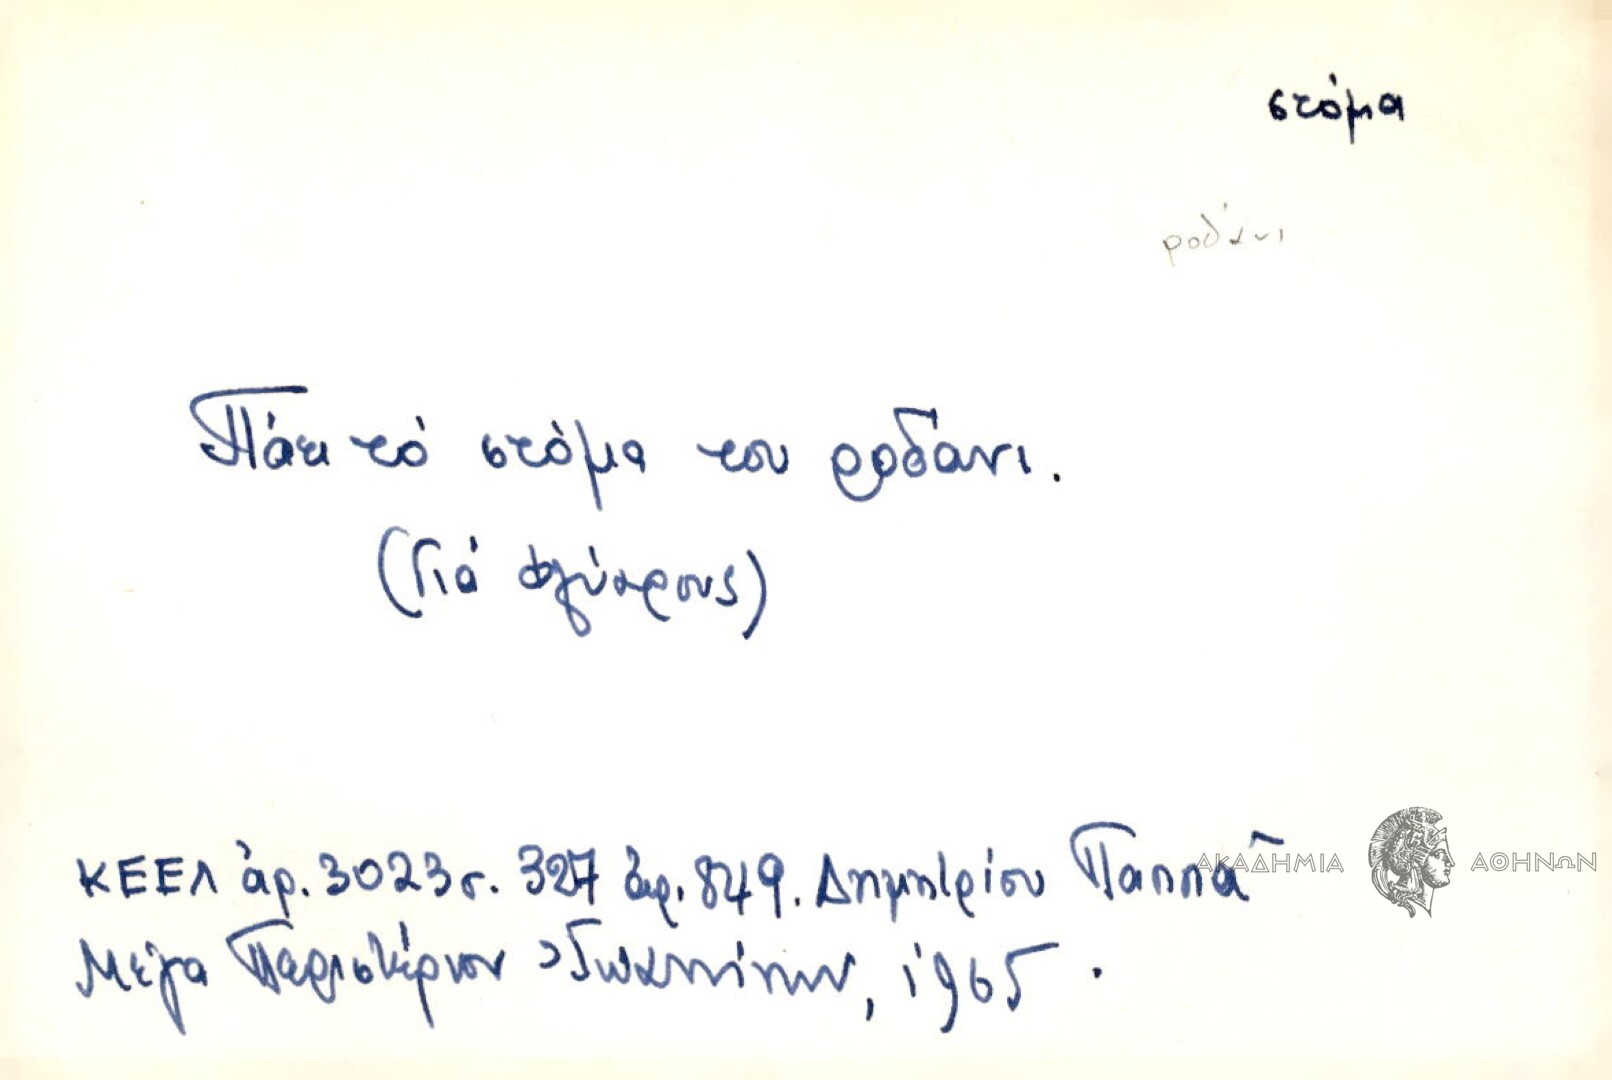 στόμα
ροδάνι
Πάει τό στόμα του ροδάνι.
(Γιά φλύαρους)
ΚΕΕΛ ἀρ. 3023 σ. 327 ἀρ. 849. Δημητρίου Παππᾶ
ΑΚΑΔΗΜΙΑ ΑΘΗΝΩΝ
Μέγα Περιστέριον Ἰωαννίνων, 1965.